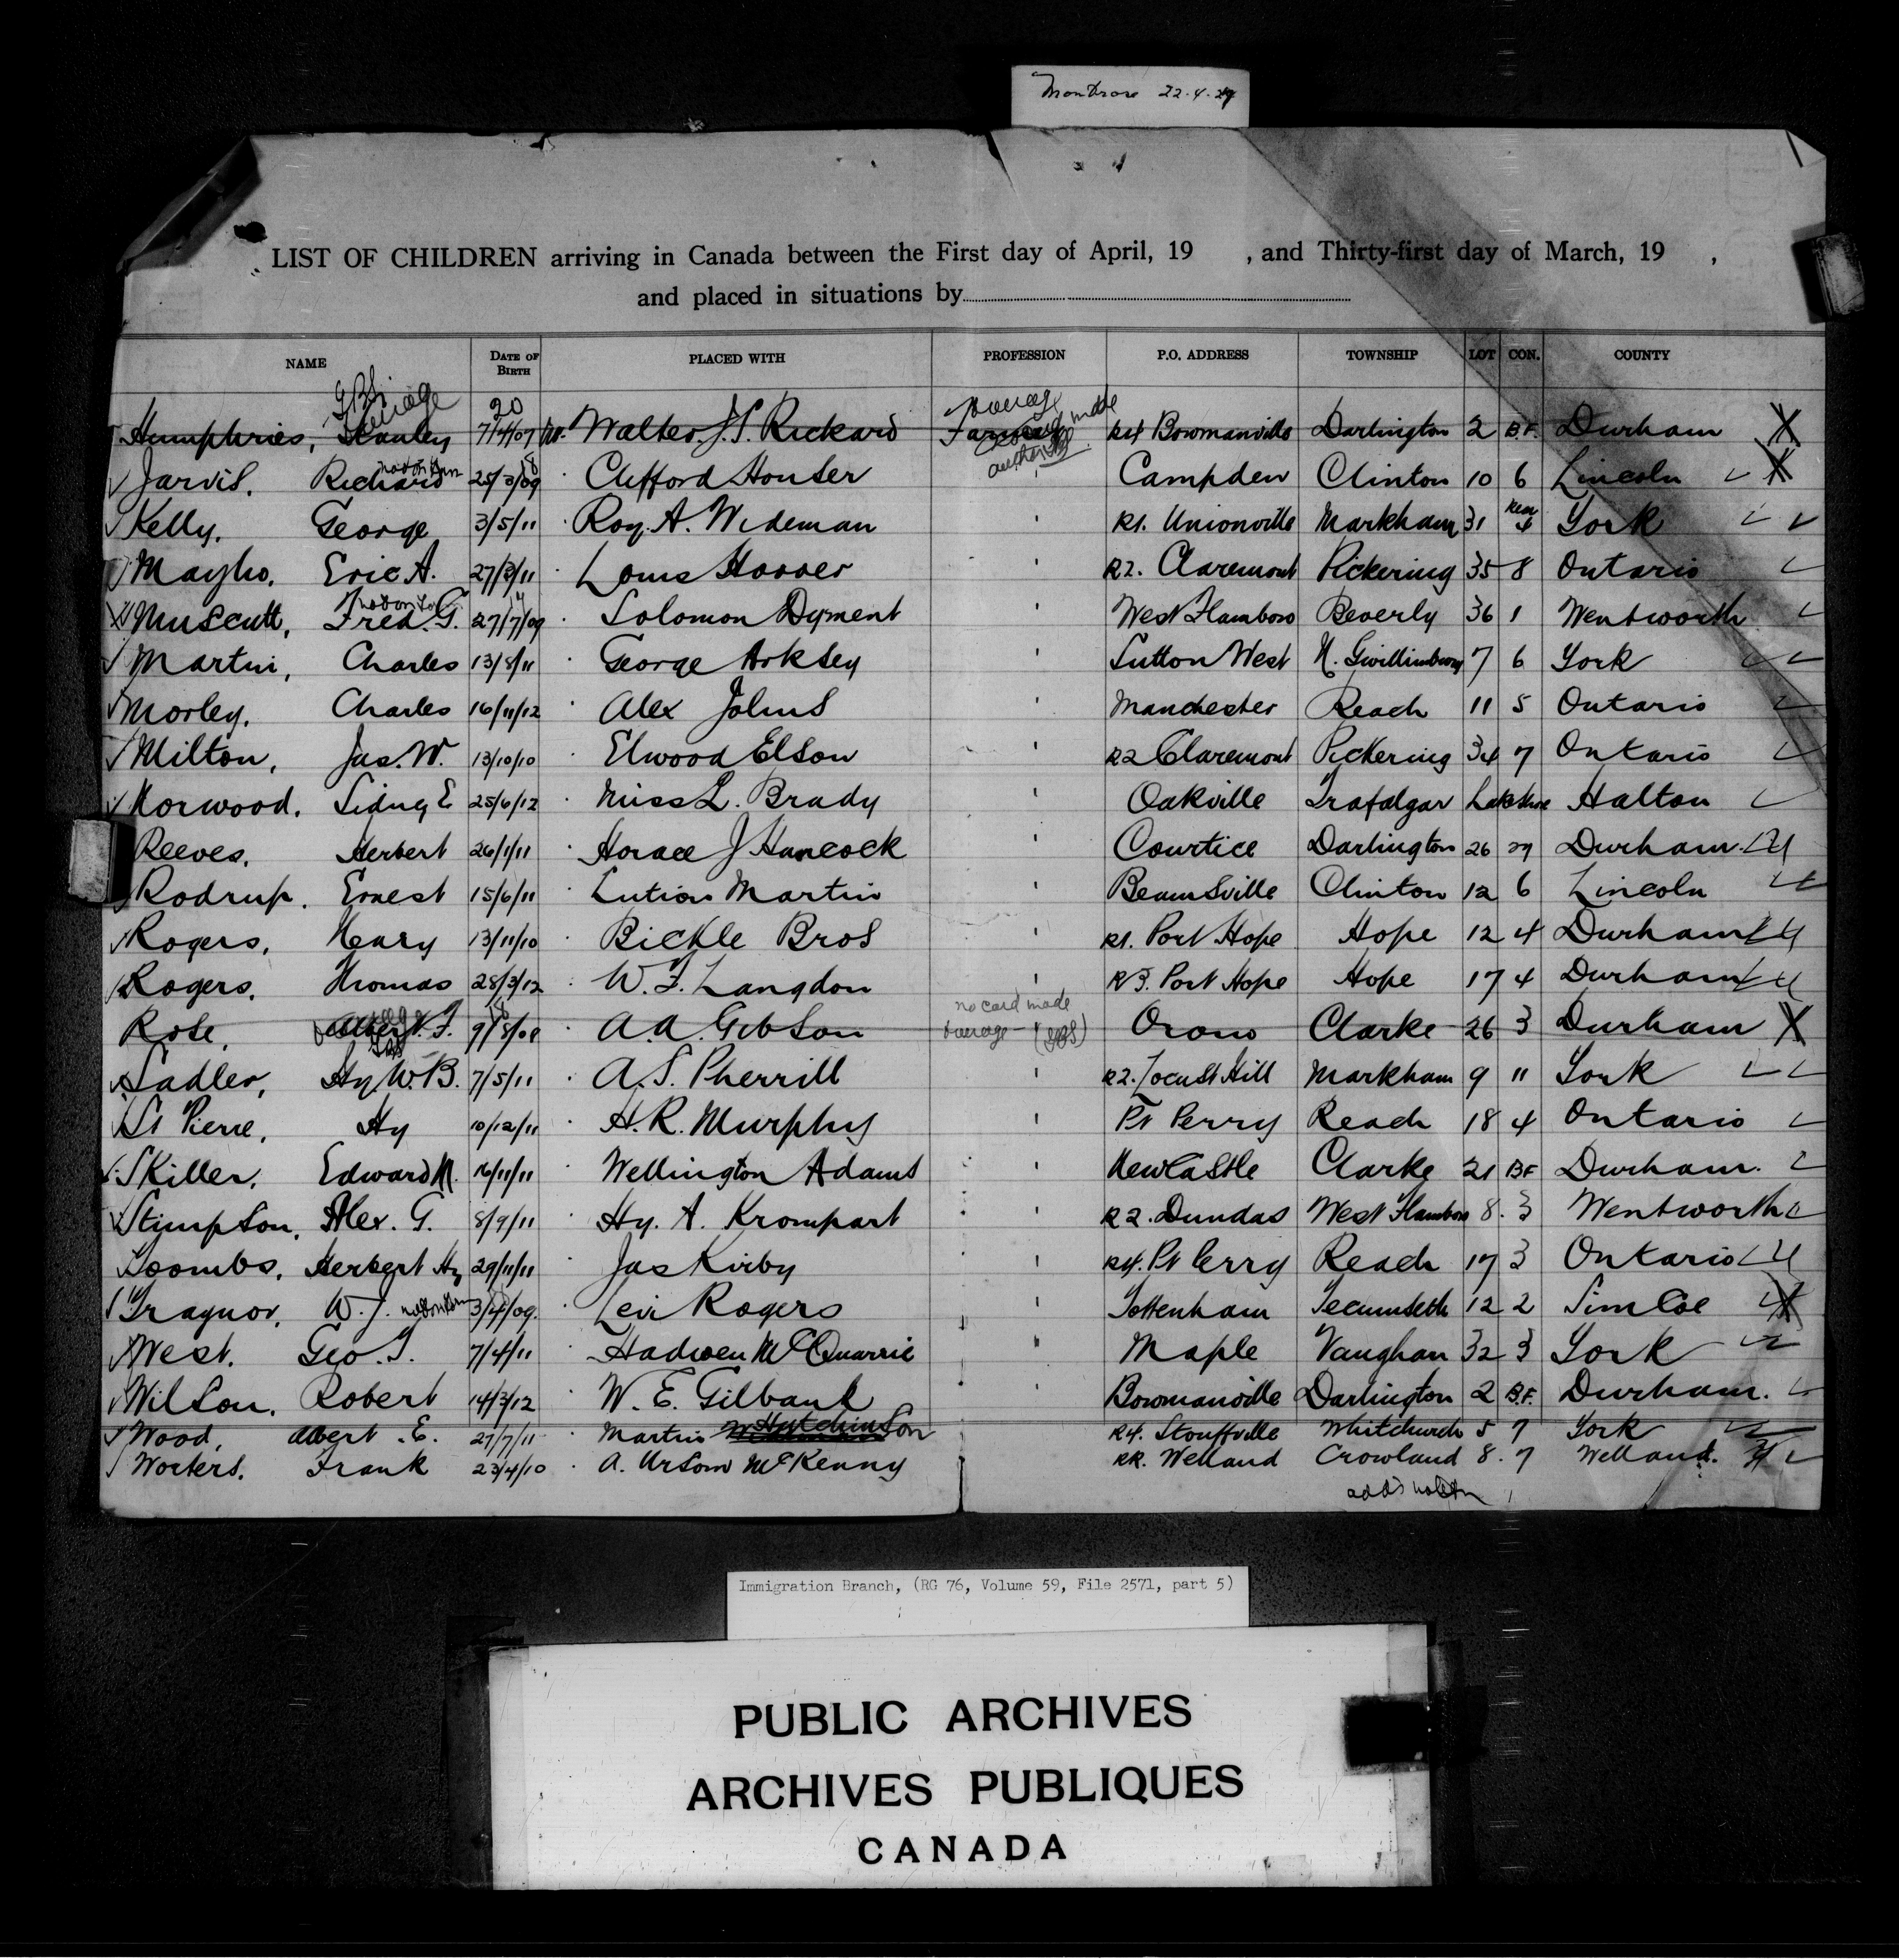 Montrose 22.4.27
LIST OF CHILDREN arriving in Canada between the First day of April, 19 , and Thirty-first day of March, 19 ,
and placed in situations by
NAME DATE OF BIRTH PLACED WITH PROFESSION P.O. ADDRESS TOWNSHIP LOT CON. COUNTY
Humphries, Stanley 7/4/07 Mr. Walter J.S. Rickard Farmer R4 Bowmanville Darlington 2 B.F. Durham X
Jarvis. Richard 25/3/09 Clifford Houser Campden Clinton 10 6 Lincoln
Kelly. George 3/5/11 Roy. A. Wideman R1. Unionville Markham 31 4 York
Mayho. Eric A. 27/3/11 Louis Hoover R2. Claremont Pickering 35 8 Ontario
Muscutt, Fred. G. 27/7/09 Solomon Dyment West Flamboro Beverly 36 1 Wentworth
Martin, Charles 13/8/11 George Arksey Sutton West N. Gwillimbury 7 6 York
Morley. Charles 16/11/12 Alex Johns Manchester Reach 11 5 Ontario
Milton, Jas. W. 13/10/10 Elwood Elson R2 Claremont Pickering 34 7 Ontario
Norwood. Sidney E 25/6/12 Miss L. Brady Oakville Trafalgar Lakeshore Halton
Reeves. Herbert 26/1/11 Horace J Hancock Courtice Darlington 26 Durham.
Rodrup. Ernest 15/6/11 Martin Beamsville Clinton 12 6 Lincoln
Rogers, Henry 13/11/10 Bickle Bros R1. Port Hope Hope 12 4 Durham
Rogers. Thomas 28/3/12 W. F. Langdon R3. Port Hope Hope 17 4 Durham
no card made
Rose, Albert. F. 9/8/08 A.A. Gibson overage - Orono Clarke 26 3 Durham X
Sadler, Hy. W. B. 7/5/11 A. S. Pherrill R2. Locust Hill Markham 9 11 York
St Pierre, Hy 10/12/11 H. R. Murphy Pt Perry Reach 18 4 Ontario
Skiller. Edward N. 16/11/11 Wellington Adams Newcastle Clarke 21 BF Durham.
Stimpson, Alex. G. 8/9/11 Hy. A. Krompart R2. Dundas West Flamboro 8. 3 Wentworth
Toombs. Herbert Hy 29/11/11 Jas Kirby R4. Pt Perry Reach 17 3 Ontario
Traynor, W. J. 3/4/09. Levi Rogers Tottenham Tecumseth 12 2 Simcoe
West. Geo. T. 7/4/11 Hadwen McQuarrie Maple Vaughan 32 3 York
Wilson. Robert 14/3/12 W. E. Gilbank Bowmanville Darlington 2 B.F. Durham.
Wood, Albert. E. 27/7/11 Martin W Hutchinson R4. Stouffville Whitchurch 5 7 York
Workers. Frank 23/4/10 A. Urson McKenny RR. Welland Crowland 8. 7 Welland.
Immigration Branch, (RG 76, Volume 59, File 2571, part 5)
PUBLIC ARCHIVES
ARCHIVES PUBLIQUES
CANADA